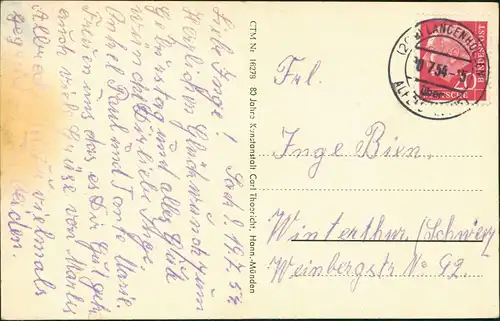 Sack 8. 14.7.54
Liebe Inge!
Herzlichen Glückwunsch zum
Geburtstag und alles Gute
wünscht Dir liebe Inge.
Onkel Paul und Tante Marie.
Freuen uns das es Dir gut geht
auch viele Grüße von
Alfred
vielmals
CTM Nr. 16278 80 Jahre Kunstanstalt Carl Thoericht, Hann.-Münden
LANGENHO
7.54
über
DEUTSCHE BUNDESPOST
20
Frl.
Inge Bien.
Winterthur/Schweiz
Weinbergstr No 92.